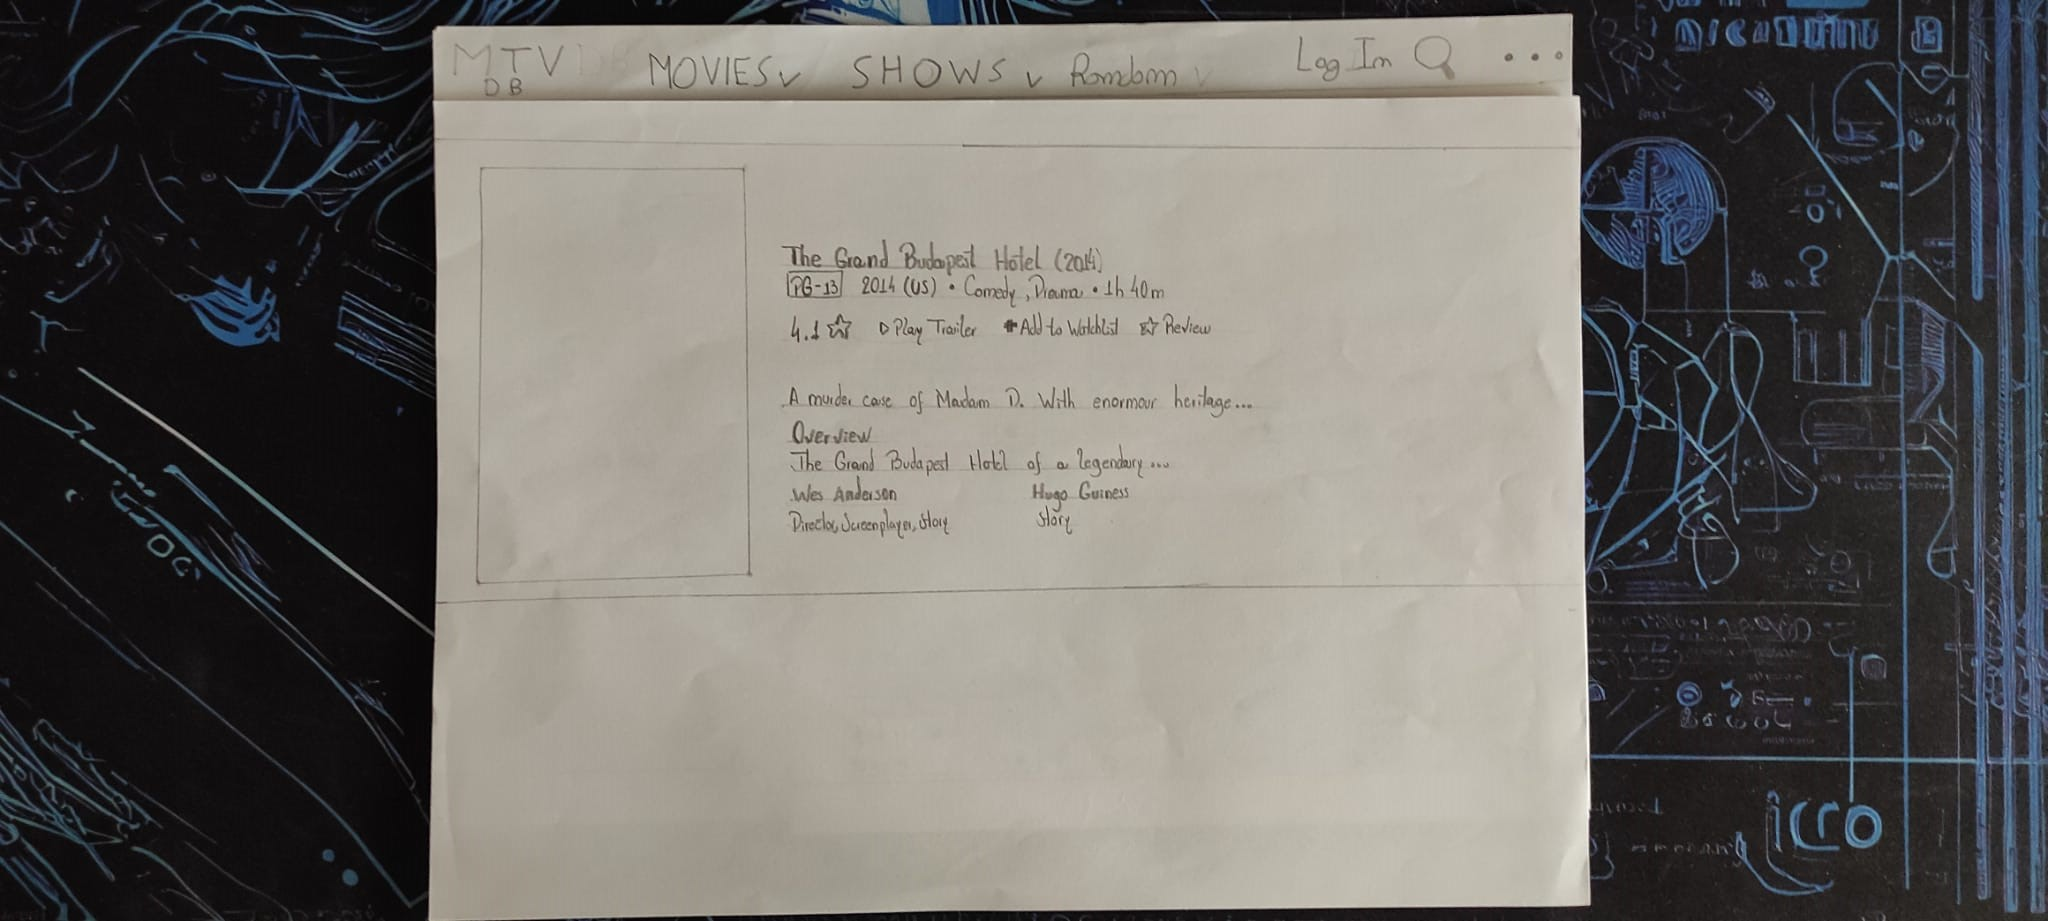 MTV
DB
MOVIES SHOWS Random Log In
The Grand Budapest Hotel (2014)
PG-13 2014 (US) • Comedy, Drama • 1h 40m
4.1 Play Trailer Add to Watchlist Review
A murder case of Madam D. With enormour heritage...
Overview
The Grand Budapest Hotel of a legendary...
Wes Anderson Hugo Guiness
Director, Screenplayer, Story Story
icro